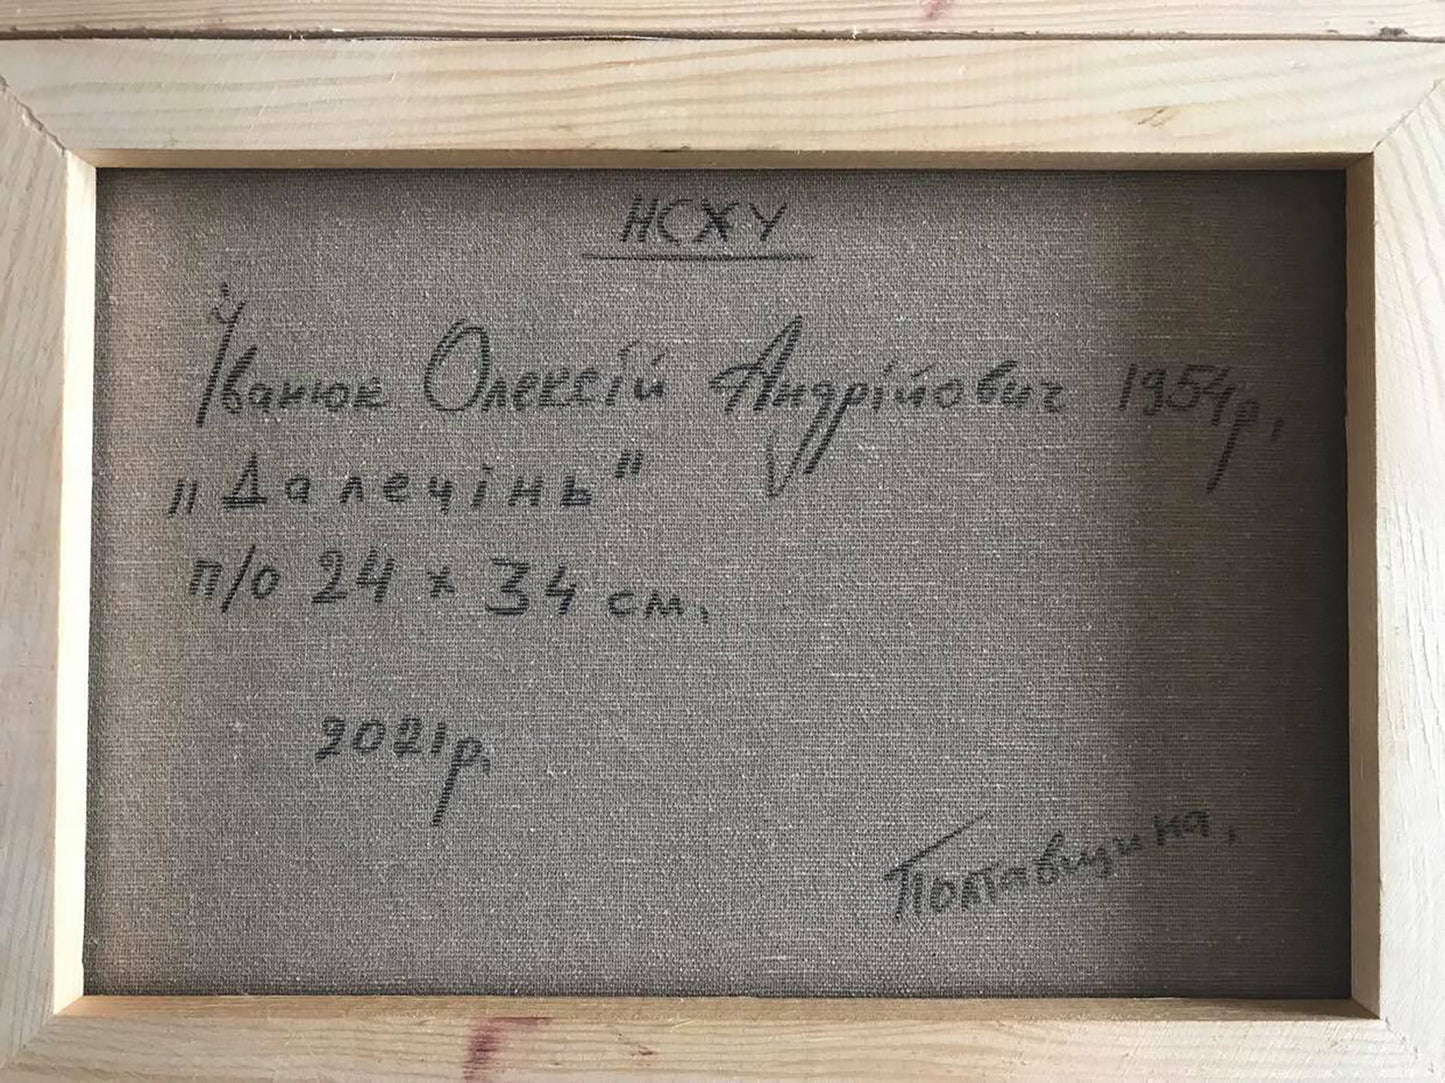 НСХУ
Іванюк Олексій Андрійович 1954р.
„Далечінь"
п/о 24 x 34 см.
2021р.
Полтавщина.